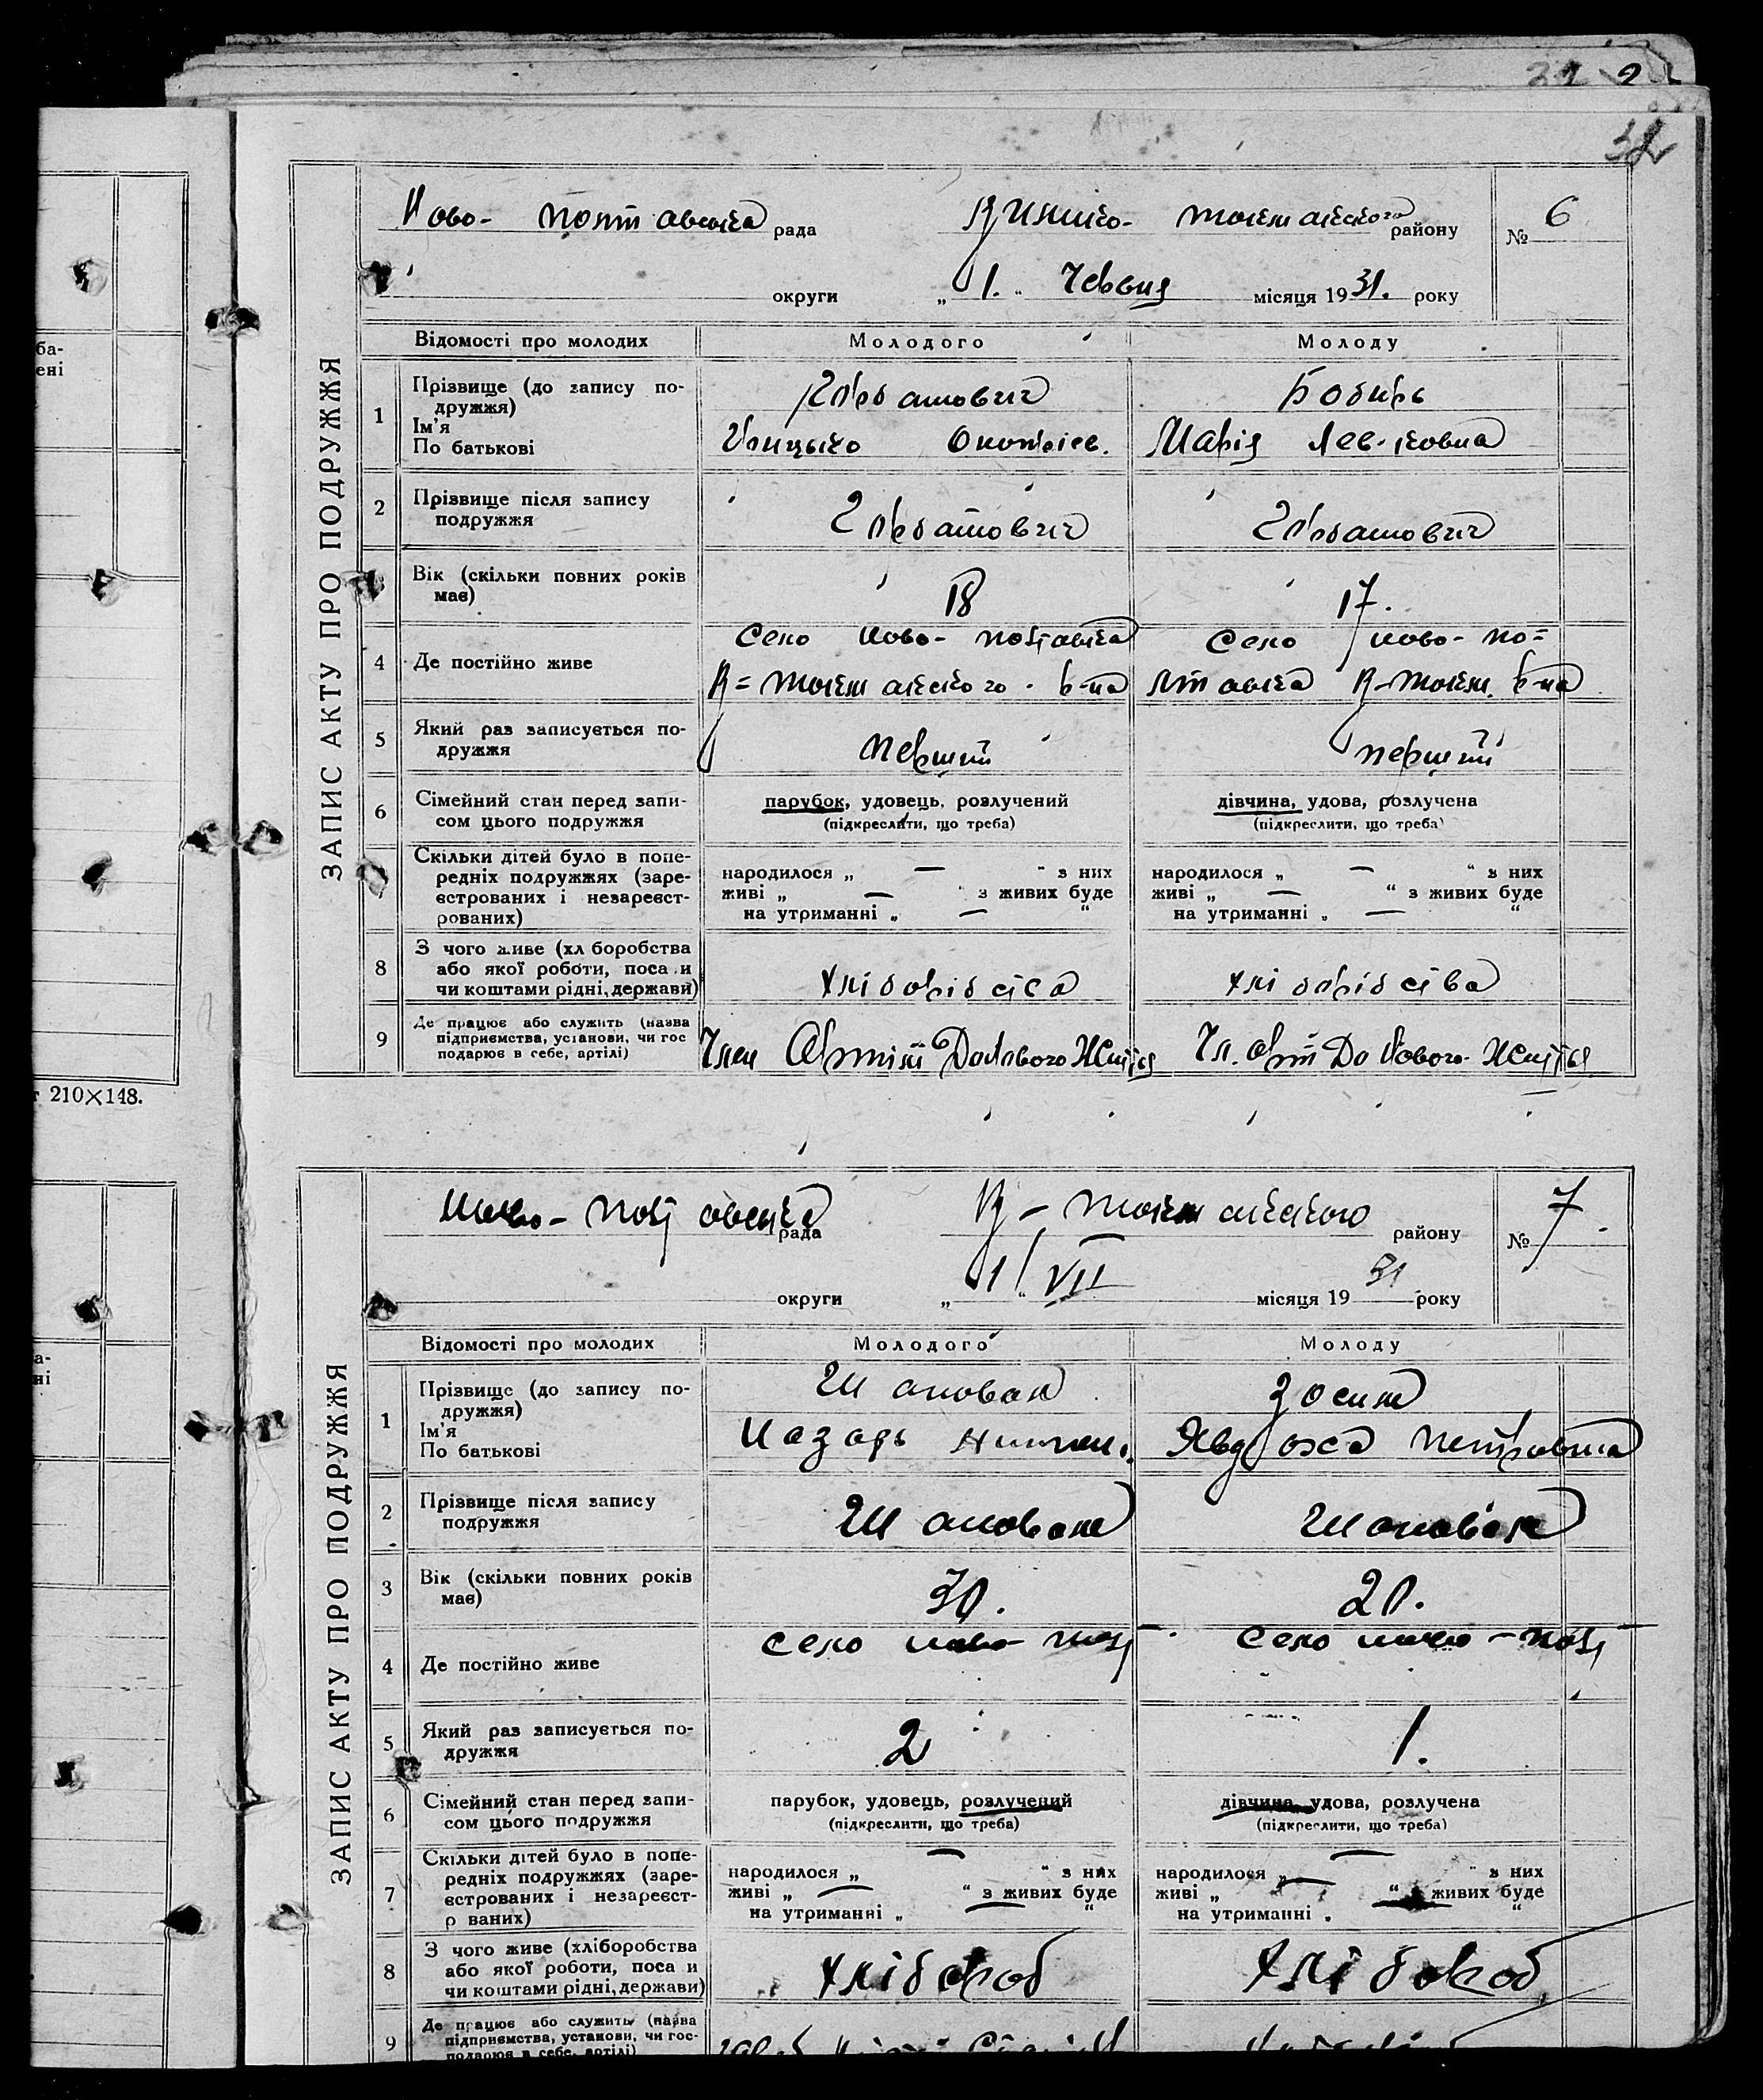 32
6
Ново- полтавська рада
токмакського району
№ 6
округи „ 1. “ Червня місяця 1931. року
ЗАПИС АКТУ ПРО ПОДРУЖЖЯ
Відомості про молодих
Молодого
Молоду
1
Прізвище (до запису по-
дружжя)
Ім'я
По батькові
Горбатовий
Грицько
Бобирь
Марія Лев-ковна
2
Прізвище після запису
подружжя
Горбатовий
Горбатовий
Вік (скільки повних років
має)
18
17.
4
Де постійно живе
село Ново- полтавка
токмакського р-на
село Ново- по=
лтавка токм. р-на
5
Який раз записується по-
дружжя
перший
перший
6
Сімейний стан перед запи-
сом цього подружжя
парубок, удовець, розлучений
(підкреслити, що треба)
дівчина, удова, розлучена
(підкреслити, що треба)
7
Скільки дітей було в попе-
редніх подружжях (заре-
єстрованих і незареєст-
рованих)
народилося „ — “ з них
живі „ — “ з живих буде
на утриманні „ — “
народилося „ — “ з них
живі „ — “ з живих буде
на утриманні „ — “
8
З чого живе (хл боробства
або якої роботи, поса и
чи коштами рідні, держави)
хліборобства
9
Де працює або служить (назва
підприємства, установи, чи гос
подарює в себе, артілі)
Член Артілі До Нового Життя
Чл. арт До Нового Життя
210×148.
Ново- полтавська рада
токмакського району
№ 7
округи „ 1 “ VII місяця 1931 року
ЗАПИС АКТУ ПРО ПОДРУЖЖЯ
Відомості про молодих
Молодого
Молоду
1
Прізвище (до запису по-
дружжя)
Ім'я
По батькові
Шаповал
Назарь
Зосим
Явдоха Петровна
2
Прізвище після запису
подружжя
Шаповал
Шаповал
3
Вік (скільки повних років
має)
30.
20.
4
Де постійно живе
село ново- полт
село ново- полт
5
Який раз записується по-
дружжя
2
1.
6
Сімейний стан перед запи-
сом цього подружжя
парубок, удовець, розлучений
(підкреслити, що треба)
дівчина, удова, розлучена
(підкреслити, що треба)
7
Скільки дітей було в попе-
редніх подружжях (заре-
єстрованих і незареєст-
р ваних)
народилося „ — “ з них
живі „ — “ з живих буде
на утриманні „ “
народилося „ — “ з них
живі „ “ живих буде
на утриманні „ “
8
З чого живе (хліборобства
або якої роботи, поса и
чи коштами рідні, держави)
хлібороб
хлібороб
9
Де працює або служить (назва
підприємства, установи, чи гос-
подарює в себе, артілі)